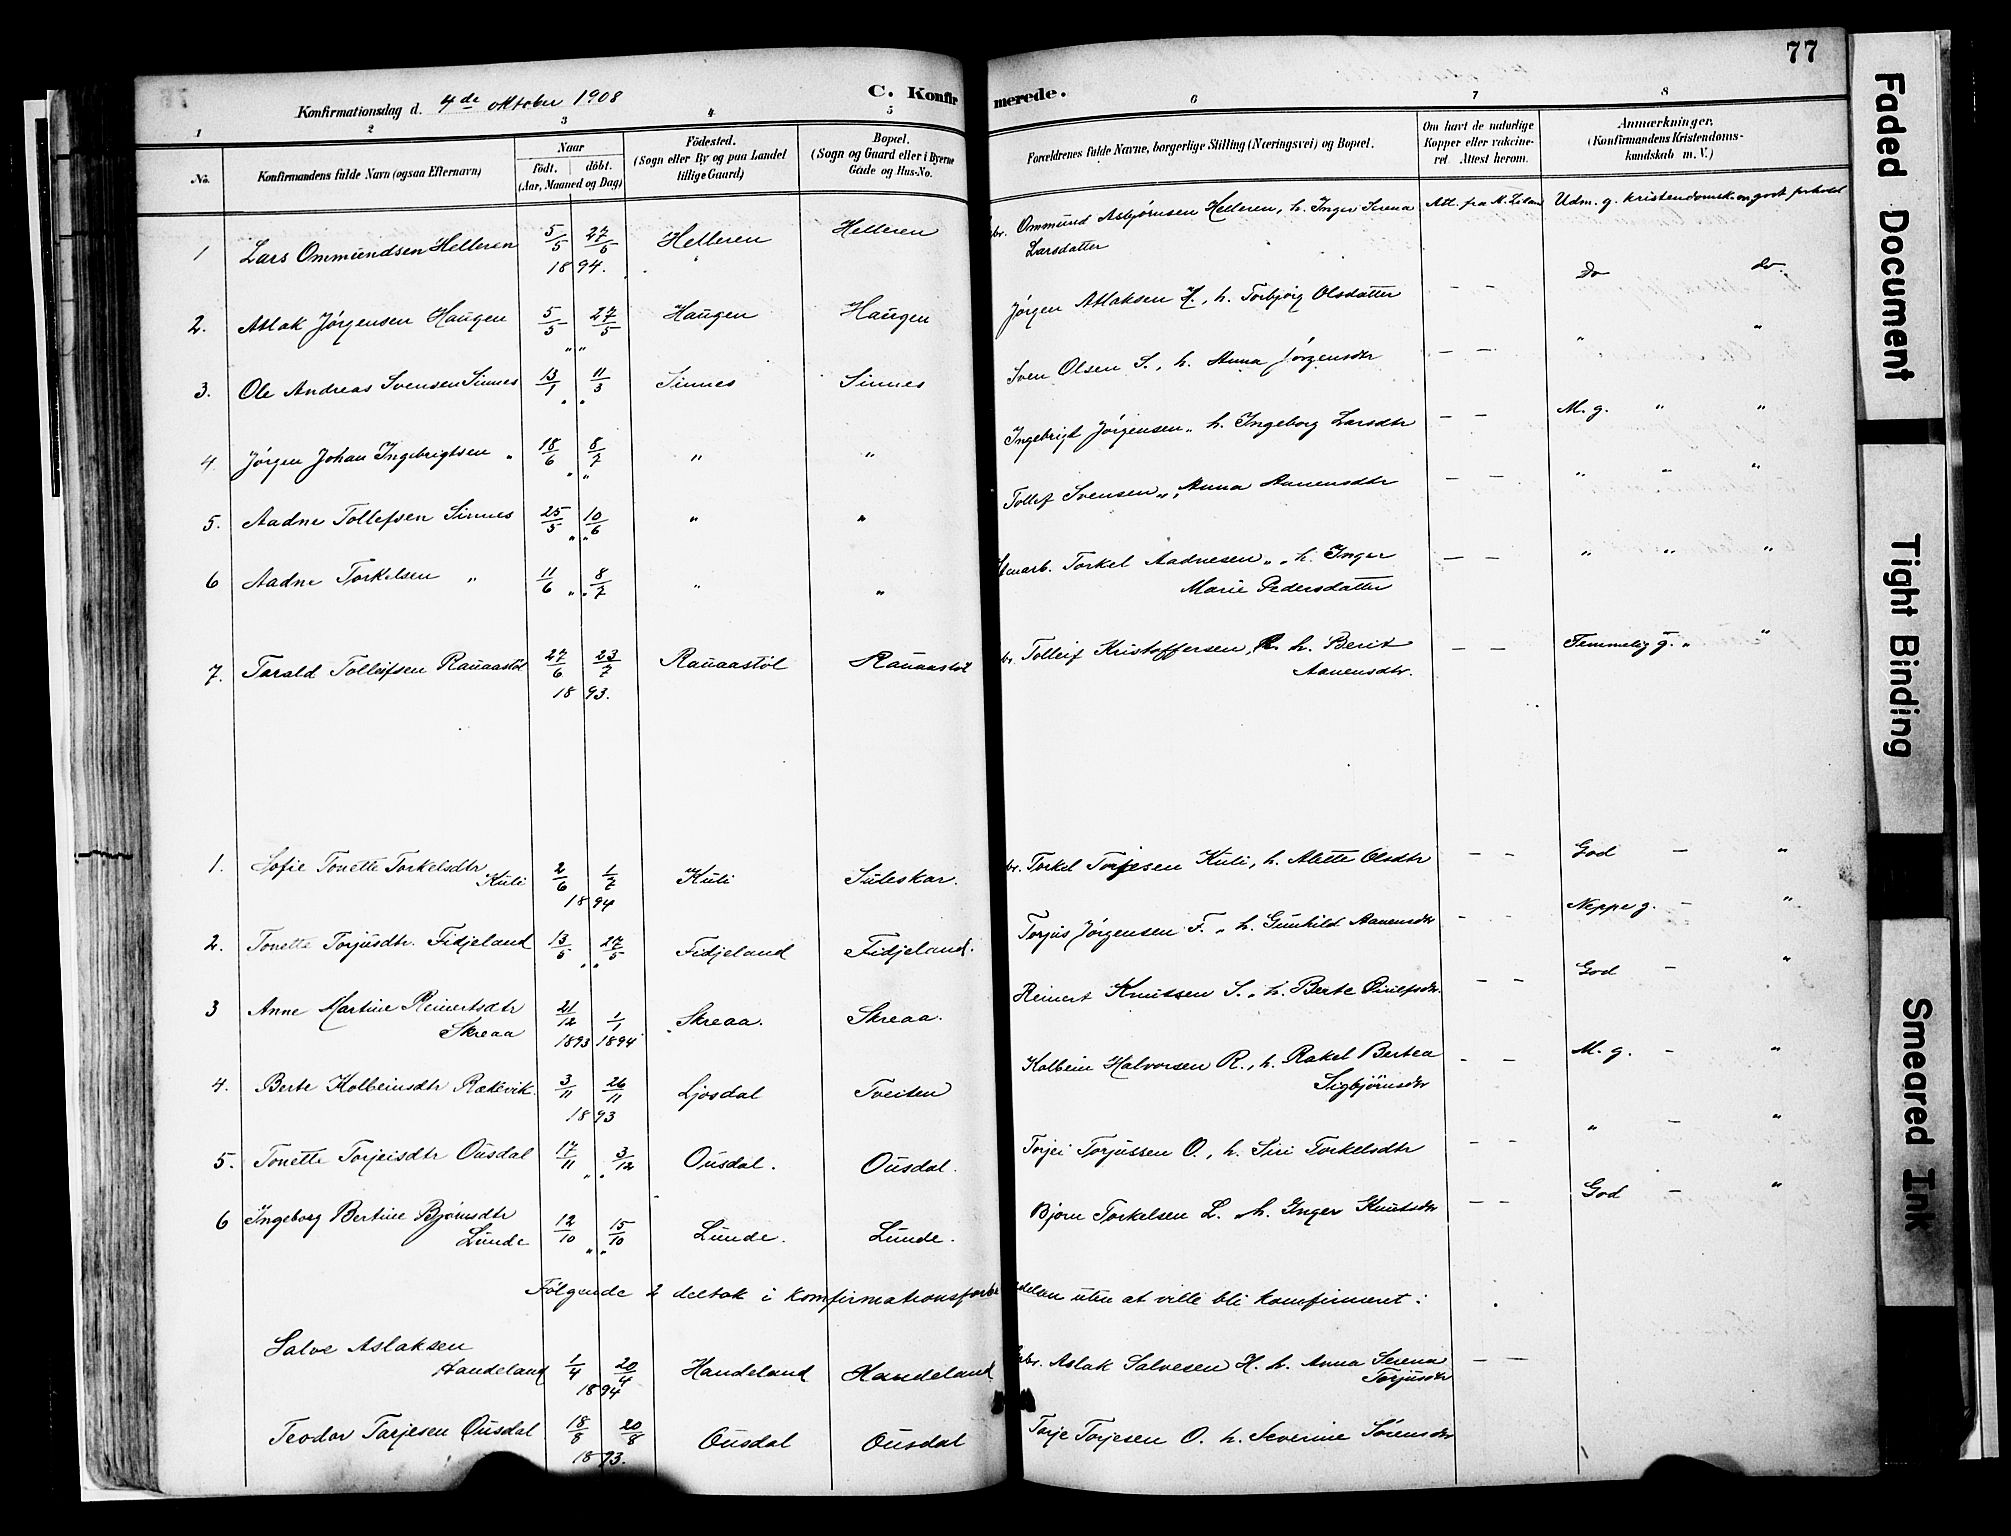 77
Konfirmationsdag d. 4de oktober 1908
C. Konfirmerede.
1 2 3 4 5 6 7 8
No.
Konfirmandens fulde Navn (ogsaa Efternavn)
Naar
födt. döbt.
(Aar, Maaned og Dag)
Födested.
(Sogn eller By og paa Landet
tillige Gaard)
Bopæl.
(Sogn og Gaard eller i Byerne
Gade og Hus-No.
Forældrenes fulde Navne, borgerlige Stilling (Næringsvei) og Bopæl.
Om havt de naturlige
Kopper eller vakcine-
ret. Attest herom.
Anmærkninger.
(Konfirmandens Kristendoms-
kundskab m. V.)
1 Lars Ommundsen Helleren 5/5 27/5 1894. Helleren Helleren Ommund Asbjørnsen Helleren, h. Inger Serena Larsdatter Att. fra Udm. g. kristendomsk. og godt forhold
2. Aslak Jørgensen Haugen 5/5 27/5 " " Haugen Haugen Jørgen Atlaksen H., h. Torbjørg Olsdatter — — Do do.
3. Ole Andreas Svensen Sinnes 13/1 11/3 " " Sinnes Sinnes Sven Olsen S., h. Anna Jørgensdtr — — " "
4. Jørgen Johan Ingebrigtsen " 18/6 8/7 " " " " Ingebrigt Jørgensen " h. Ingeborg Larsdtr — — M. g. " "
5. Aadne Tollefsen Sinnes 25/5 10/6 " " " " Tollef Svensen ", Anna Aanensdtr — — " " "
6 Aadne Torkelsen " 11/6 8/7 " " " " Torkel Aadnesen " " h. Inger Marie Pedersdatter — — " " "
7. Tarald Tolleifsen Rauaastøl 27/6 23/7 1893. Rauaastöl Rauaastöl Tolleif Kristoffersen, R. h. Berit Aanensdtr. — — Temmelig g. " "
1. Sofie Tonette Torkelsdtr Kuli 2/6 1/7 1894 Kuli Suleskar. Torkel Torjesen Kuli, h. Alette Olsdtr — — God — "
2. Tonette Torjusdtr. Fidjeland 13/5 27/5 " " Fidjeland Fidjeland. Torjus Jørgensen F. " h. Gunhild Aanensdtr — — Neppe g. — "
3 Anne Martine Reinertsdtr Skreaa 21/12 1893 1/1 1894 Skreaa. Skreaa. Reinert Knutsen S. " h. Berte — — God — "
4. Berte Kolbeinsdtr Rækevik. 3/11 26/11 1893 Ljosdal Tveiten Kolbein Halvorsen R., h. Rakel Bertea Sigbjörnsdtr — — M. g. — "
5. Tonette Torjeisdtr Ousdal 17/11 3/12 " " Ousdal. Ousdal. Torjei Torjussen O., h. Siri Torkelsdtr — — " — "
6 Ingeborg Bertine Bjørnsdtr Lunde 12/10 15/10 " " Lunde. Lunde. Bjørn Torkelsen L. " h. Inger Knutsdtr — — God — "
Følgende 2 deltok i konfirmationsforbe delsen uten at ville bli konfirmeret:
Salve Aslaksen Handeland 1/4 20/4 1894 Handeland Handeland Aslak Salvesen H. h. Anna Serena Torjusdtr — —
Teodor Tarjesen Ousdal 18/8 20/8 1893. Ousdal Ousdal Torje Torjesen O. h. Severine Sörensdtr
Faded Document
Tight Binding
Smeared Ink